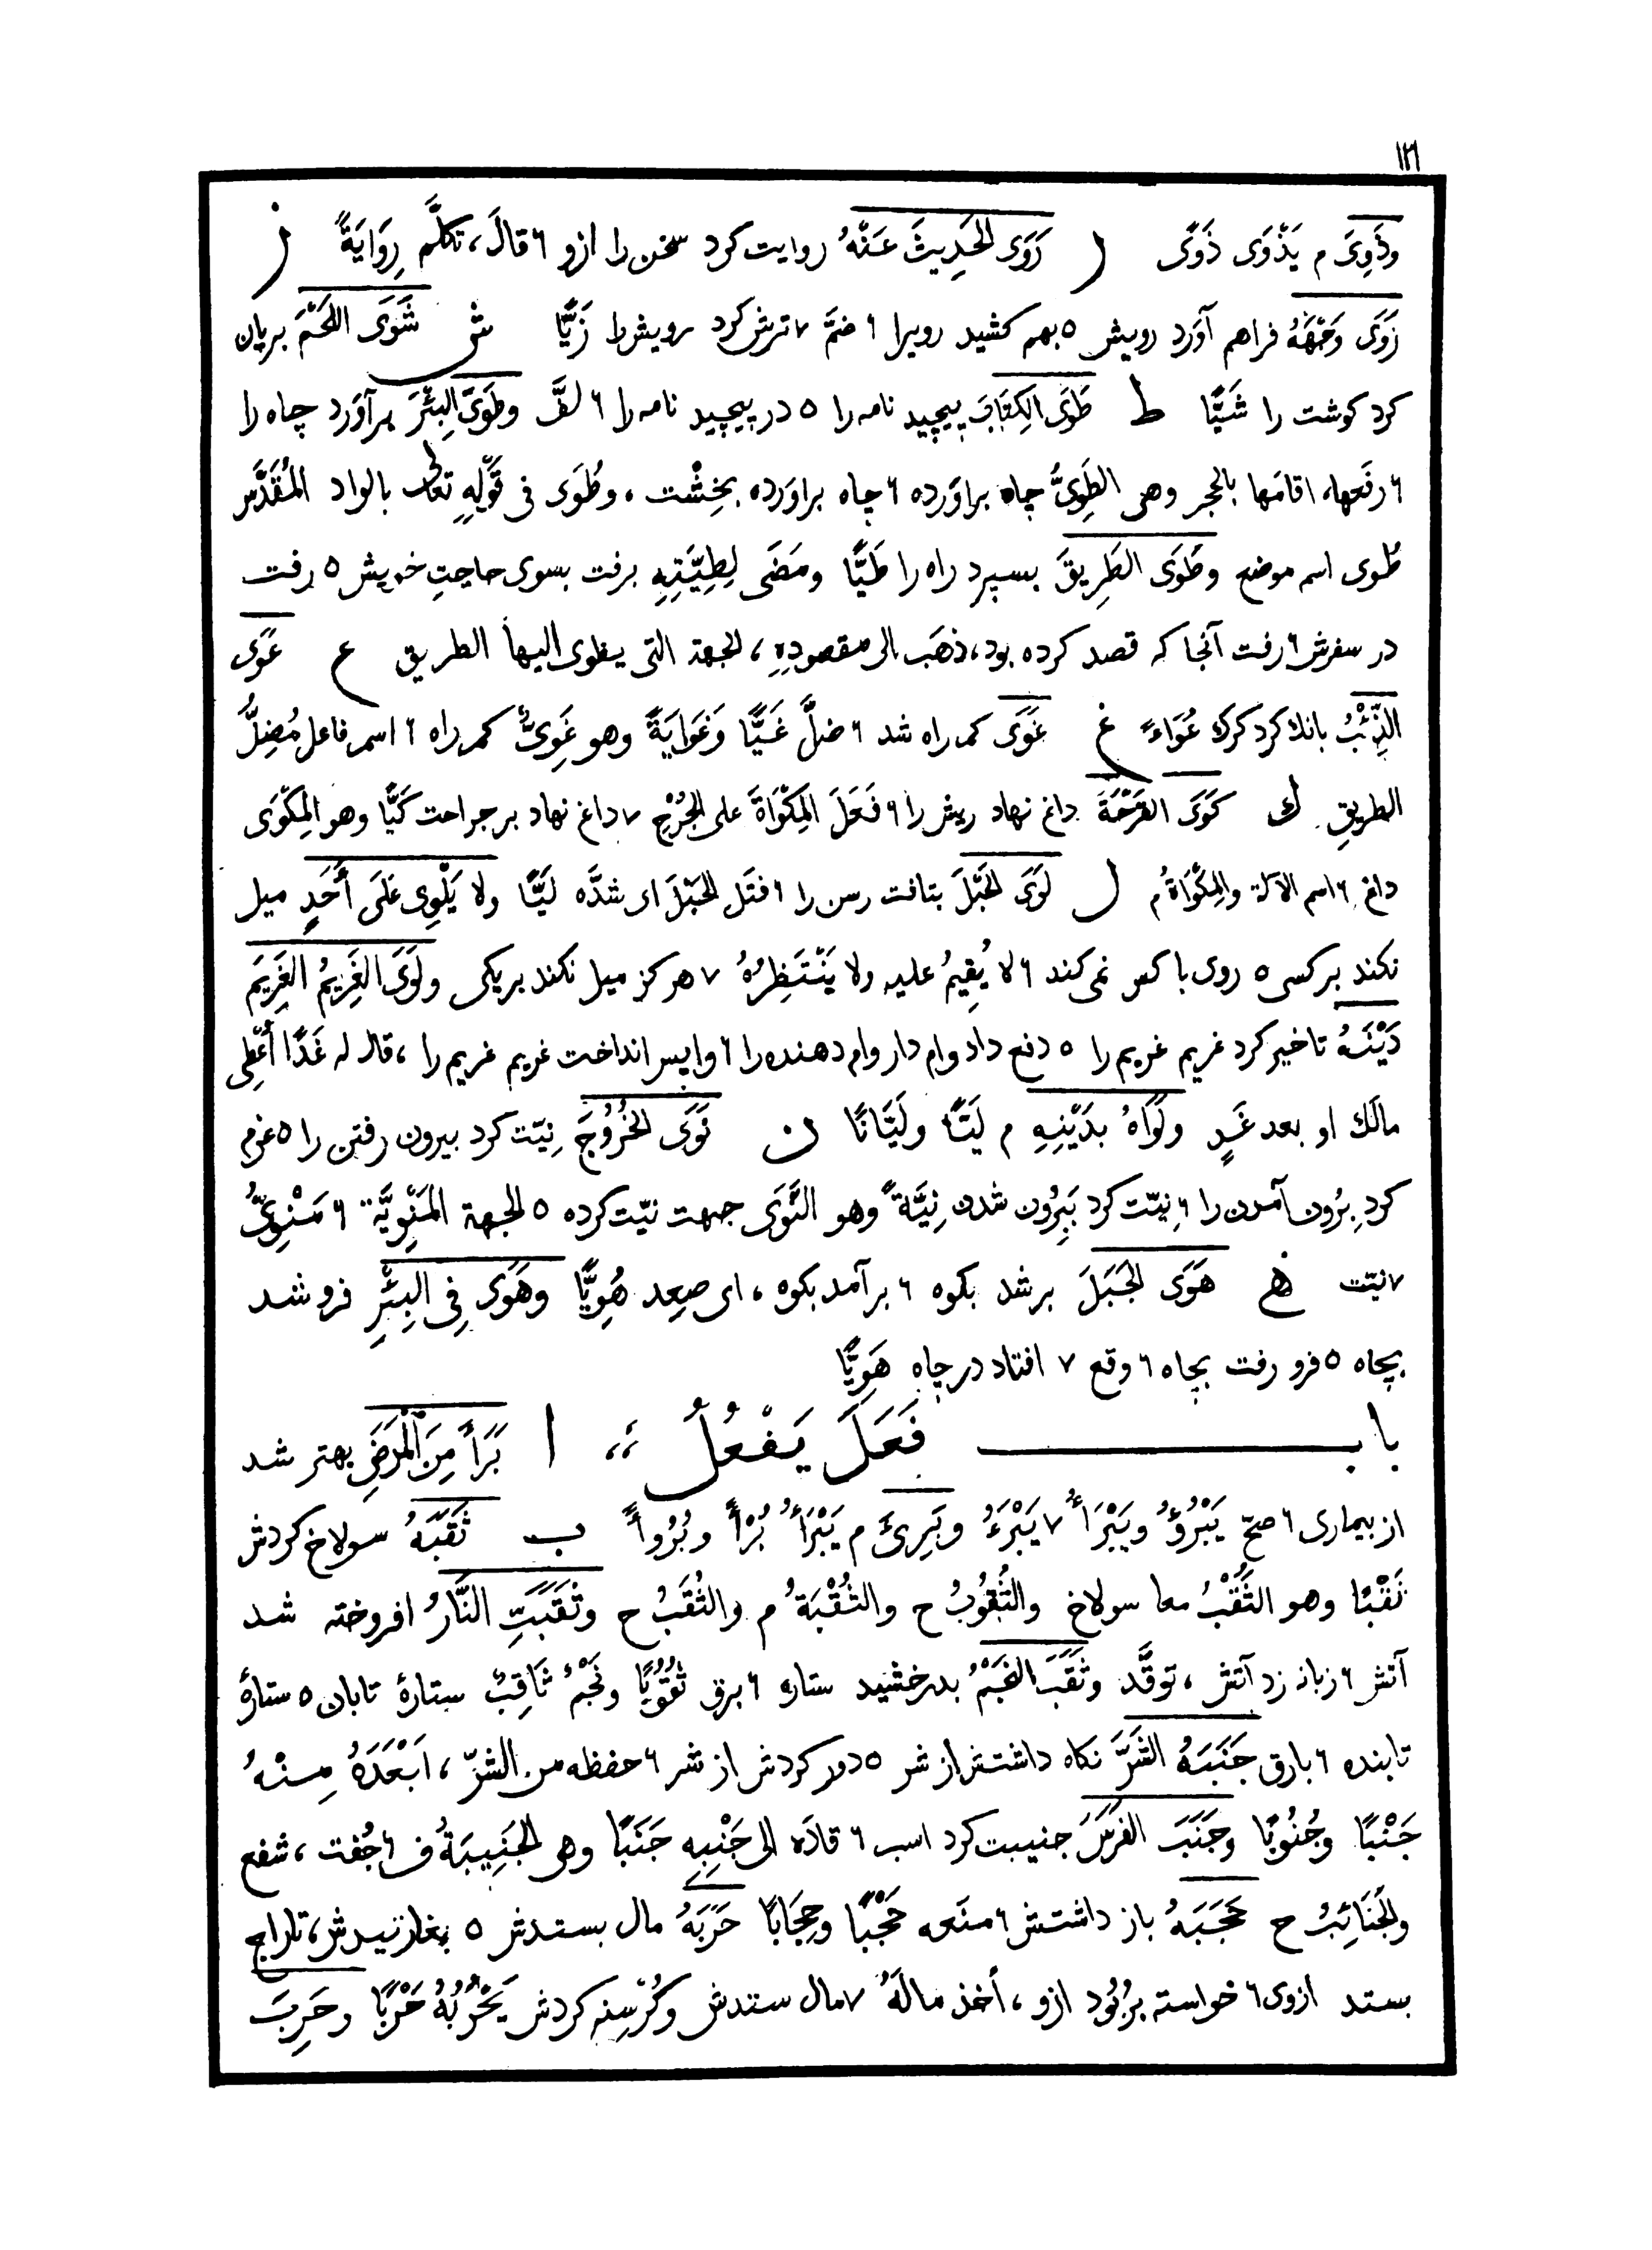 ١٢٦
وذَوِىَ م يَذْوَى ذَوًى ر رَوَى الحَدِيثَ عَنْهُ روايت كرد سخن را ازو ٦ قالَ، تكلَّم رِوَايَةً ز
زَوَى وَجْهَهُ فراهم آوَرد رويش ٥ بهم كشيد رويرا ٦ ضمَّ ٧ ترش كرد رويش را زَيًّا ش شَوَى اللحْمَ بريان
كرد كوشت را شَيًّا ط طَوَى الكِتَابَ پيچيد نامه را ٥ در پيچيد نامه را ٦ لفَّ وطَوَى البِئْرَ برآوَرد چاه را
٦ رفَعها، اقامَها بالحجر وهى الطَوِىُّ چاه براوَرده ٦ چاه براوَرده بخِشْت، وطُوَى فى قَوْلِهِ تعالى بالواد المُقَدَّس
طُوى اسم موضع وطَوَى الطَرِيقَ بسپرد راه را طَيًّا ومَضَى لِطِيَّتِهِ برفت بسوى حاجتِ خويش ٥ رفت
در سفرش ٦ رفت آنجا كه قصد كرده بود، ذهَب الى مقصودِهِ، لجهة التى يطوى اليها الطريق ع عَوَى
الذِّئْبُ بانك كرد كرك عُوَاءً غ غَوَى كم راه شد ٦ ضلَّ غَيًّا وَغَوَايَةً وهو غَوِىٌّ كم راه ٦ اسم فاعل مُضِلُّ
الطريقِ ك كَوَى القَرْحَةَ داغ نهاد ريش را ٦ فَعَلَ المِكْوَاةَ على الجُرْحِ ٧ داغ نهاد بر جراحت كَيًّا وهو المِكْوَى
داغ ٦ اسم الآلة والمِكْوَاةُ م ل لَوَى الحَبْلَ بتافت رسن را ٦ فتَل الحَبْلَ اى شدَّه لَيًّا ولا يَلْوِى عَلَى أَحَدٍ ميل
نكند بر كسى ٥ روى با كس نمى كند ٦ لا يُقِيمُ عليه ولا يَنْتَظِرُهُ ٧ هركز ميل نكند بريكى ولَوَى الغَرِيمُ الغَرِيمَ
دَيْنَهُ تاخير كرد غريم غريم را ٥ دفع داد وام دار وام دهنده را ٦ واپس انداخت غريم غريم را، قال له غَدًا أُعْطِى
مالَك او بعد غَدٍ ولَوَاهُ بدَيْنِهِ م لَيًّا ولَيَّانًا ن نَوَى الخُرُوجَ نِيّت كرد بيرون رفتن را ٥ عزم
كرد بِرُون آمدن را ٦ نِيّت كرد بَيِرُون شدن نِيَّةً وهو النَّوَى جهت نيّت كرده ٥ الجهة المَنْوِيَّة ٦ مَنْوِىٌّ
٧ نيّت ه هَوَى الجَبَلَ بر شد بكوه ٦ برآمد بكوه، اى صعِد هُوِيًّا وهَوَى فِى البِئْرِ فرو شد
بچاه ٥ فرو رفت بچاه ٦ وقع ٧ افتاد در چاه هَوِيًّا
باب فَعَلَ يَفْعُلُ،، ا بَرَأَ مِنَ المَرَضِ بهتر شد
از بيمارى ٦ صحّ يَبْرُؤُ ويَبْرَأُ ٧ يَبْرَءُ وبَرِئَ م يَبْرَأُ بُرْأً وبُرُوأً ب ثَقَبَهُ سولاخ كردش
ثَقْبًا وهو الثَقْبُ معا سولاخ والثُقُوبُ ح والثُقْبَةُ م والثُقَبُ ح وثَقَبَتِ النَّارُ افروخته شد
آتش ٦ زبانه زد آتش، توقَّد وثَقَبَ النَجْمُ بدرخشيد ستاره ٦ برق ثُقُوبًا ونَجْمٌ ثَاقِبٌ ستارۀ تابان ٥ ستارۀ
تابنده ٦ بارق جَنَبَهُ الشَرَّ نكاه داشتش از شر ٥ دور كردش از شر ٦ حفظه من الشرّ، اَبْعَدَهُ مِنْهُ
جَنْبًا وجُنُوبًا وجَنَبَ الفَرَسَ جنيبت كرد اسب ٦ قادَه الى جَنْبِهِ جَنَبًا وهى الجَنِيبَةُ ف ٦ جُفت، شفع
والجَنَائِبُ ح حَجَبَهُ باز داشتش ٦ منَعه حَجْبًا وحِجَابًا حَرَبَهُ مال بستدش ٥ بغارتيدش، تاراج
بستد ازوى ٦ خواسته برُبُود ازو، أخذ مالَهُ ٧ مال ستدش وكُرْسِنه كردش يَحْرُبُهُ حَرْبًا وحَرِبَ